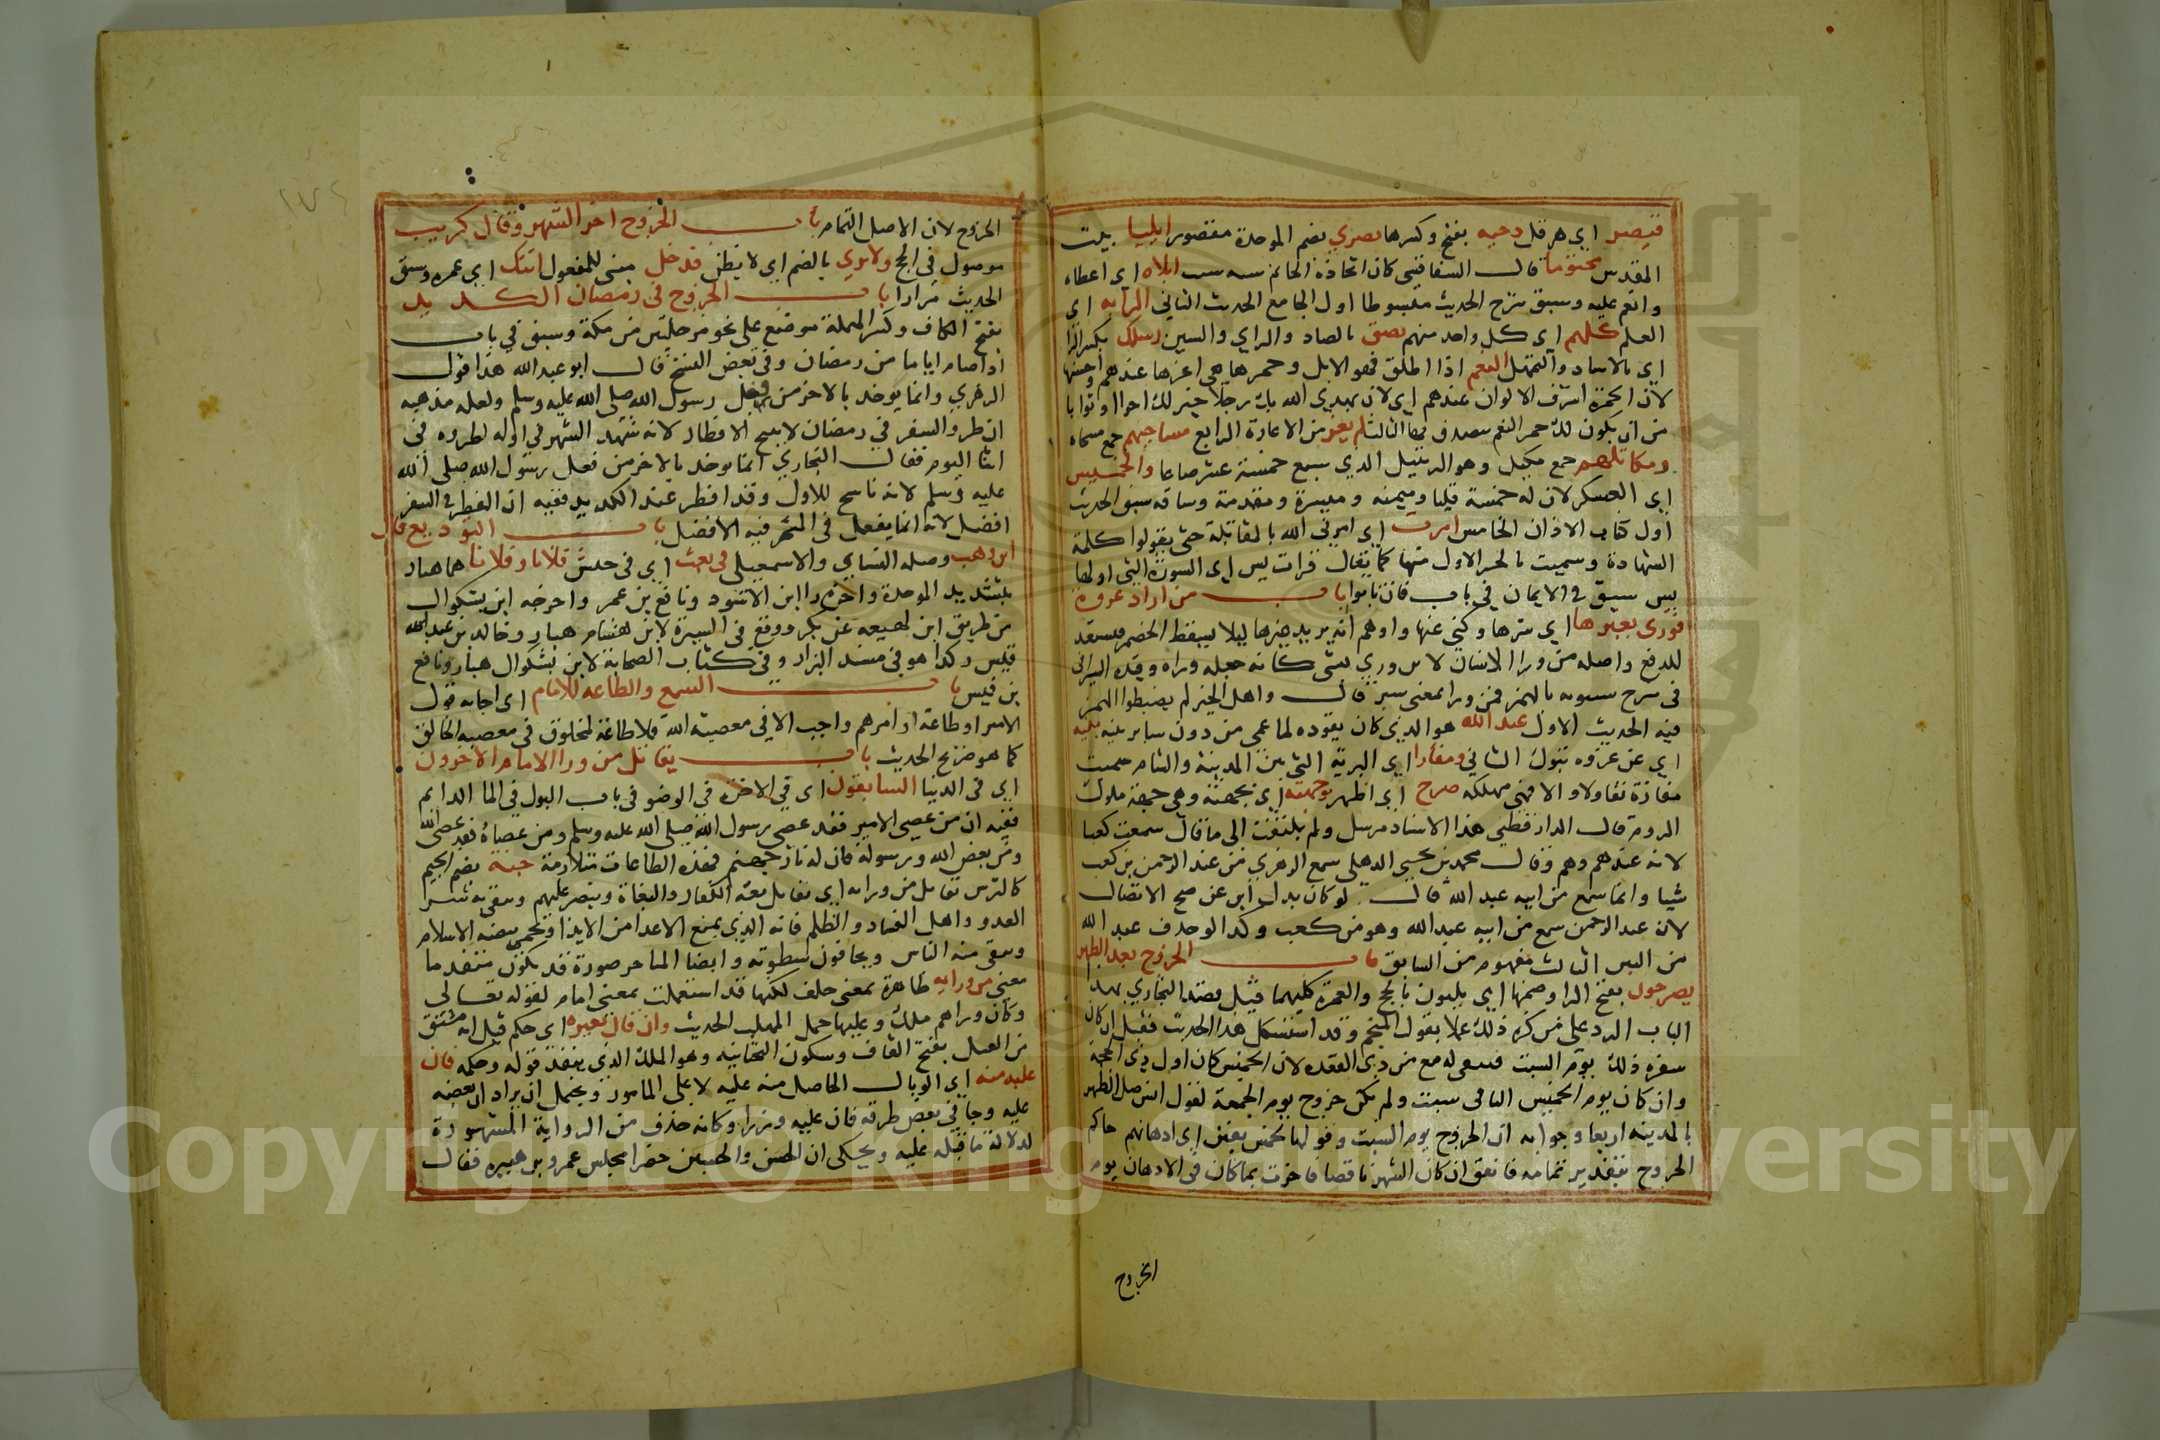 قيصر اي هرقل دحيه بفتح وكسرها بصري بضم الموحدة مقصور ايليا بيت
المقدس مختوما قال السفاقسي كان اتخاذه الخاتم سنه ست ابلاه اي اعطاه
وانعم عليه وسبق شرح الحديث مبسوطا اول الجامع الحديث الثاني الرايه اي
العلم كلهم اي كل واحد منهم بصق بالصاد والزاي والسين رسلك بكسر الرا
اي بالاتئاد والتمهل النعم اذا اطلق فهو الابل وحمرها هي اعزها عندهم واحسنها
لان الحمرة اشرف الالوان عندهم اي لان يهدي الله بك رجلا خير لك اجرا وثوابا
من ان يكون لك حمر النعم فتصدق بها الثالث لم يغر من الاغارة الرابع مساحيهم جمع مسحاه
ومكاتلهم جمع مكيل وهو الزنبيل الذي يسع خمسة عشر صاعا والخميس
اي العسكر لان له خمسة قلبا وميمنه وميسرة ومقدمة وساقه سبق الحديث
اول كتاب الاذان الخامس امرت اي امرني الله بالمقاتلة حتى يقولوا كلمة
الشهادة وسميت بالجزء الاول منها كما يقال قرات يس اي السورة التي اولها
يس سبق في الايمان في باب فان تابوا باب من اراد غزوة
فورى بغيرها اي سترها وكني عنها واوهم انه يريد غيرها ليلا يتيقظ الخصم فيستعد
للدفع واصله من ورا الانسان لان من وري بشي كانه جعله وراه وقيده السيرافي
في شرح سيبويه بالهمز فمن ورا بمعنى ستر قال واهل الخبر لم يضبطوا الهمز
فيه الحديث الاول عبد الله هو الذي كان يقوده لما عمي من دون ساير بنيه بنيه
اي عن غزوه تبوك الثاني ومفازا اي البرية التي بين المدينة والشام سميت
مفازة تفاولا والا فهي مهلكه صرح اي اظهر بوجهته اي بجهته وهي جهة ملوك
الروم قال الدارقطني هذا الاسناد مرسل ولم يلتفت الى ما قال سمعت كعبا
لانه عندهم وهم وقال محمد بن يحيي الذهلي سمع الزهري من عبد الرحمن بن كعب
شيا وانما سمع من ابيه عبد الله قال لو كان بدل ابن عن صح الاتصال
لان عبد الرحمن سمع من ابيه عبد الله وهو من كعب وكذا لو حذف عبد الله
من البين الثالث مفهوم من السابق باب الخروج بعد الظهر
يصرخون بفتح الرا وضمها اي يلبون بالحج والعمرة كليهما قيل قصد البخاري بهذا
الباب الرد على من كره ذلك عملا بقول المنجم وقد استشكل هذا الحديث فقيل ان كان
سفره ذلك يوم السبت فبقوله مع من ذي القعده لان الخميس كان اول ذي الحجة
وان كان يوم الخميس الباقي سبت ولم يكن خروج يوم الجمعة لقول انس صلى الظهر
بالمدينه اربعا وجوابه ان الخروج يوم السبت وقولها لخمس بقين اي اذهانهم حاكم
الخروج بتقدير تمامه فاتفق ان كان الشهر ناقصا فاخبرت بما كان في الاذهان يوم
الخروج
الخروج لان الاصل التمام باب الخروج اخر الشهر وقال كريب
موصول في الحج ولا نري بالضم اي لا نظن فدخل مبني للمفعول اتتك اي عمره وسبق
الحديث مرارا باب الخروج في رمضان الكديد
بفتح الكاف وكسر المهملة موضع على نحو مرحلتين من مكة وسبق في باب
اذا صام اياما من رمضان وفي بعض النسخ قال ابو عبد الله هذا قول
الزهري وانما يوخذ بالاخر من فعل رسول الله صلى الله عليه وسلم ولعله مذهبه
ان طرو السفر في رمضان لا يبيح الافطار لانه شهد الشهر في اوله لطروه في
اثنا اليوم فقال البخاري انما يوخذ بالاخر من فعل رسول الله صلى الله
عليه وسلم لانه ناسخ للاول وقد افطر عند الكديد ففيه ان الفطر في السفر
افضل لانه انما يفعل في المخير فيه الافضل باب التوديع قال
ابن وهب وصله النساي والاسمعيلي في بعث اي في جيش فلانا وفلانا هما هبار
بتشديد الموحدة واخره را ابن الاسود ونافع بن عمر واخرجه ابن بشكوال
من طريق ابن لهيعه عن بكر ووقع في السيرة لابن هشام هبار وخالد بن عبد الله
قيس وكذا هو في مسند البزار وفي كتاب الصحابة لابن بشكوال هبار ونافع
بن قيس باب السمع والطاعه للامام اي اجابه قول
الامير او طاعة اوامرهم واجب الا في معصية الله فلا طاعة لمخلوق في معصيه الخالق
كما هو صريح الحديث باب يقاتل من ورا الامام الاخرون
اي في الدنيا السابقون اي في الاخرة في الوضو في باب البول في الما الدايم
ففيه ان من عصى الامير فقد عصى رسول الله صلى الله عليه وسلم ومن عصاه فقد عصى الله
ومن يعص الله ورسوله فان له نار جهنم فهذه الطاعات متلازمة جنة بضم الجيم
كالترس تقاتل من ورايه اي تقاتل معه الكفار والبغاة وينصر عليهم ويتقى به شر
العدو واهل الفساد والظلم فانه الذي يمنع الاعدا من الايذا ويحمي بيضه الاسلام
ويتقي منه الناس ويخافون سطوته وايضا المتاخر صورة قد يكون متقدما
معنى من ورايه ظاهرة بمعنى خلف لكنها قد استعملت بمعنى امام لقوله تعالى
وكان وراهم ملك وعليها حمل المهلب الحديث وان قال بغيره اي حكم قيل انه مشتق
من القيل بفتح القاف وسكون التحتانيه وهو الملك الذي ينفذ قوله وحكمه فان
عليه منه اي الوبال الحاصل منه عليه لا على المامور ويحتمل ان يراد ان بعضه
عليه وجا في بعض طرقه فان عليه وزرا وكانه حذف من الرواية المشهورة
لدلالة ما قبله عليه ويحكى ان الحسن والحسين حضرا مجلس عمرو بن هبيره فقال
Copyright © King Saud University